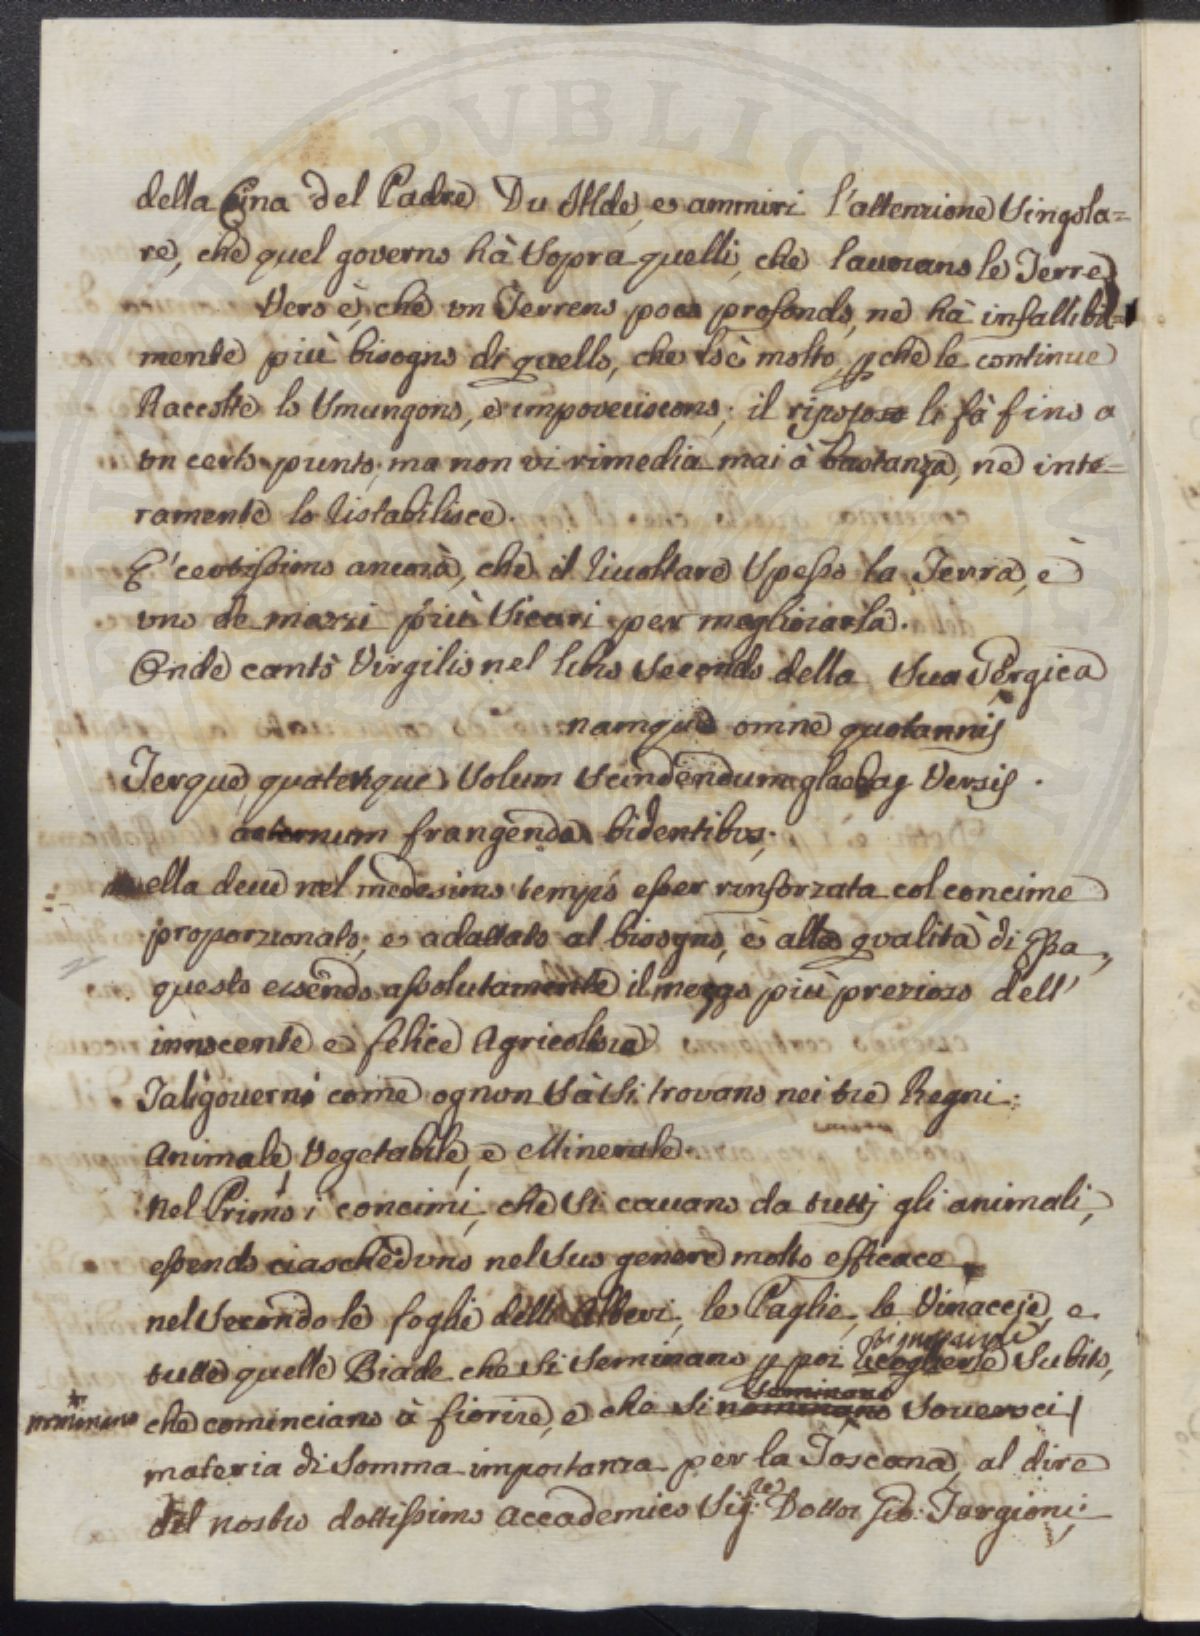 della Cina del Padre Du Allde, e ammiri l'attenzione singola=
re, che quel governo hà sopra quelli, che lavorano le Terre
Vero è, che un Terreno poco profondo, ne hà infallibil=
mente più bisogno di quello, che lo è molto, pchè le continue
Raccolte lo smungono, e impoveriscono; il riposo lo fà fino a
un certo punto, ma non vi rimedia mai à bastanza, ne inte=
ramente lo ristabilisce.
E' certissimo ancorà, che il rivoltare spesso la Terra, è
uno de mezzi più sicuri per migliorarla.
Onde cantò Virgilio nel libro secondo della sua Georgica
namque omne quotannis
Terque, quaterque solum scindendum glaebaq versis.
aeternum frangenda bidentibus;
ella deve nel medesimo tempo esser rinforzata col concime
proporzionato, e adattato al bisogno, è alla qualità di Essa,
questo essendo assolutamente il mezzo più prezioso dell'
innocente e felice Agricoltura
Tali governi come ognun sà si trovano nei tre Regni:
Animale, Vegetabile, e Minerale.
Nel Primo i concimi, che si cavano da tutti gli animali,
essendo ciaschèduno nel suo genere molto efficace
nel secondo le foglie delli Alberi, le Paglie, le Vinaccie, e
tutte quelle Biade che si seminano p poi ricoglierle subito,
che cominciano à fiorire, e che si nominano soversci
seminano
nominano
materia di somma importanza per la Toscana, al dire
del nostro dottissimo Accademico Sig:re Dottor Gio: Targioni;